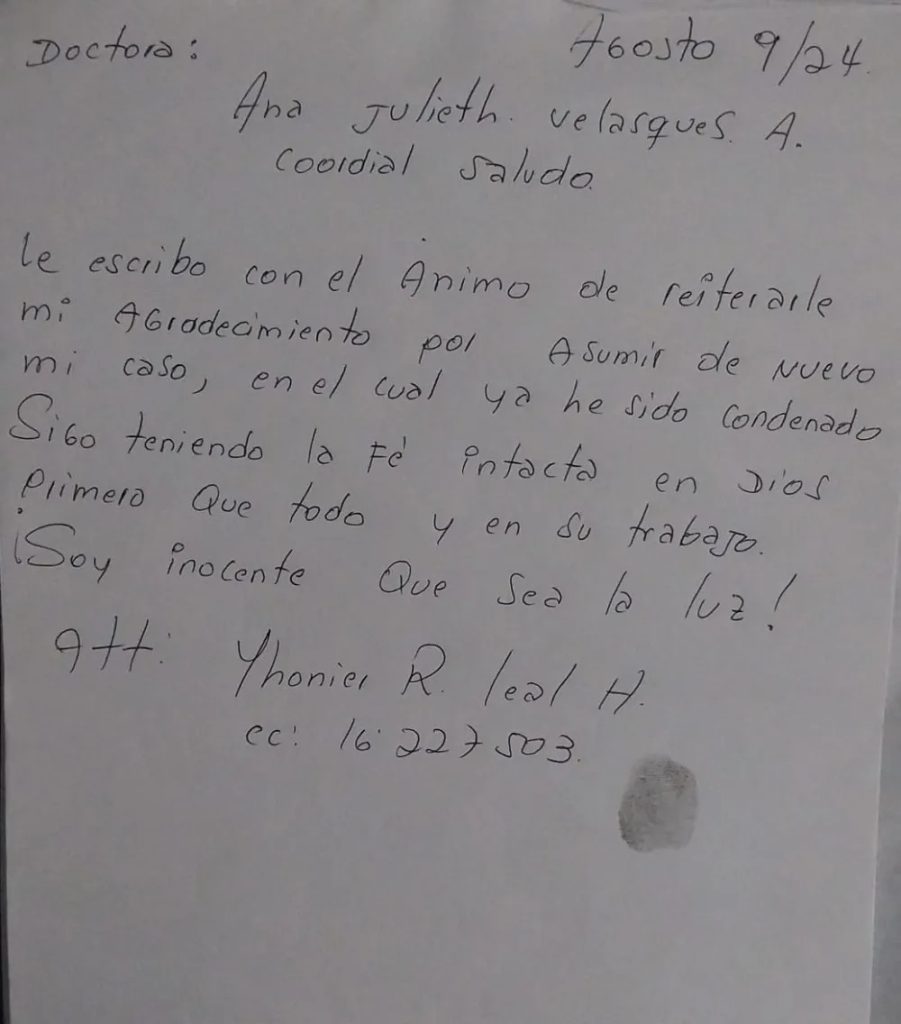 Doctora: Agosto 9/24.
Ana Julieth. Velasques. A.
Coordial saludo.
le escribo con el Animo de reiterarle
mi AGradecimiento por Asumir de Nuevo
mi caso, en el cual ya he sido condenado
SiGo teniendo la Fé intacta en Dios
Primero Que todo y en su trabajo.
¡Soy inocente Que sea la luz!
Att: Yhonier R. leal H.
cc: 16.227503.